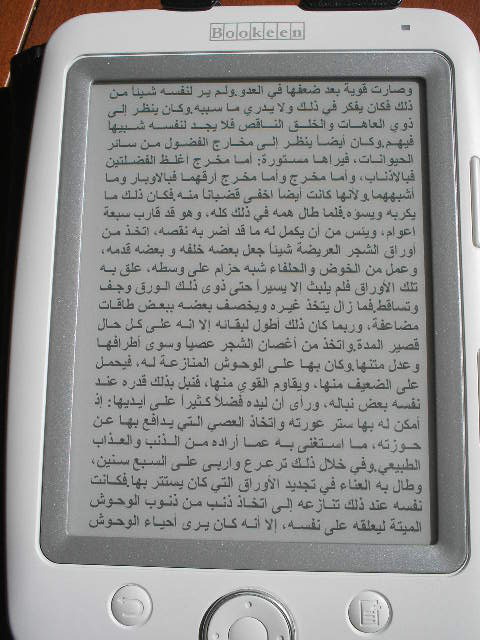 Bookeen
وصارت قوية بعد ضعفها في العدو.ولم ير لنفسه شيئا من
ذلك فكان يفكر في ذلك ولا يدري ما سببه.وكان ينظر إلى
ذوي العاهات والخلق الناقص فلا يجد لنفسه شبيها
فيهم.وكان أيضا ينظر إلى مخارج الفضول من سائر
الحيوانات، فيراها مستورة: أما مخرج أغلظ الفضلتين
فبالأذناب، وأما مخرج وأما مخرج أرقهما فبالأوبار وما
أشبههما.ولأنها كانت أيضا أخفى قضبانا منه.فكان ذلك ما
يكربه ويسوءه.فلما طال همه في ذلك كله، وهو قد قارب سبعة
أعوام، ويئس من أن يكمل له ما قد أضر به نقصه، اتخذ من
أوراق الشجر العريضة شيئا جعل بعضه خلفه و بعضه قدمه،
وعمل من الخوض والحلفاء شبه حزام على وسطه، علق به
تلك الأوراق فلم يلبث إلا يسيراً حتى ذوى ذلك الورق وجف
وتساقط.فما زال يتخذ غيره ويخصف بعضه ببعض طاقات
مضاعفة، وربما كان ذلك أطول لبقائه إلا أنه على كل حال
قصير المدة.واتخذ من أغصان الشجر عصياً وسوى أطرافها
وعدل متنها.وكان بها على الوحوش المنازعة له، فيحمل
على الضعيف منها، ويقاوم القوي منها، فنبل بذلك قدره عند
نفسه بعض نباله، ورأى أن ليده فضلاً كثيراً على أيديها: إذ
أمكن له بها ستر عورته واتخاذ العصي التي يدافع بها عن
حوزته، ما استغنى به عما أراده من الذنب والعذاب
الطبيعي.وفي خلال ذلك ترعرع واربى على السبع سنين،
وطال به العناء في تجديد الأوراق التي كان يستتر بها.فكانت
نفسه عند ذلك تنازعه إلى اتخاذ ذنب من ذنوب الوحوش
الميتة ليعلقه على نفسه، إلا أنه كان يرى أحياء الوحوش